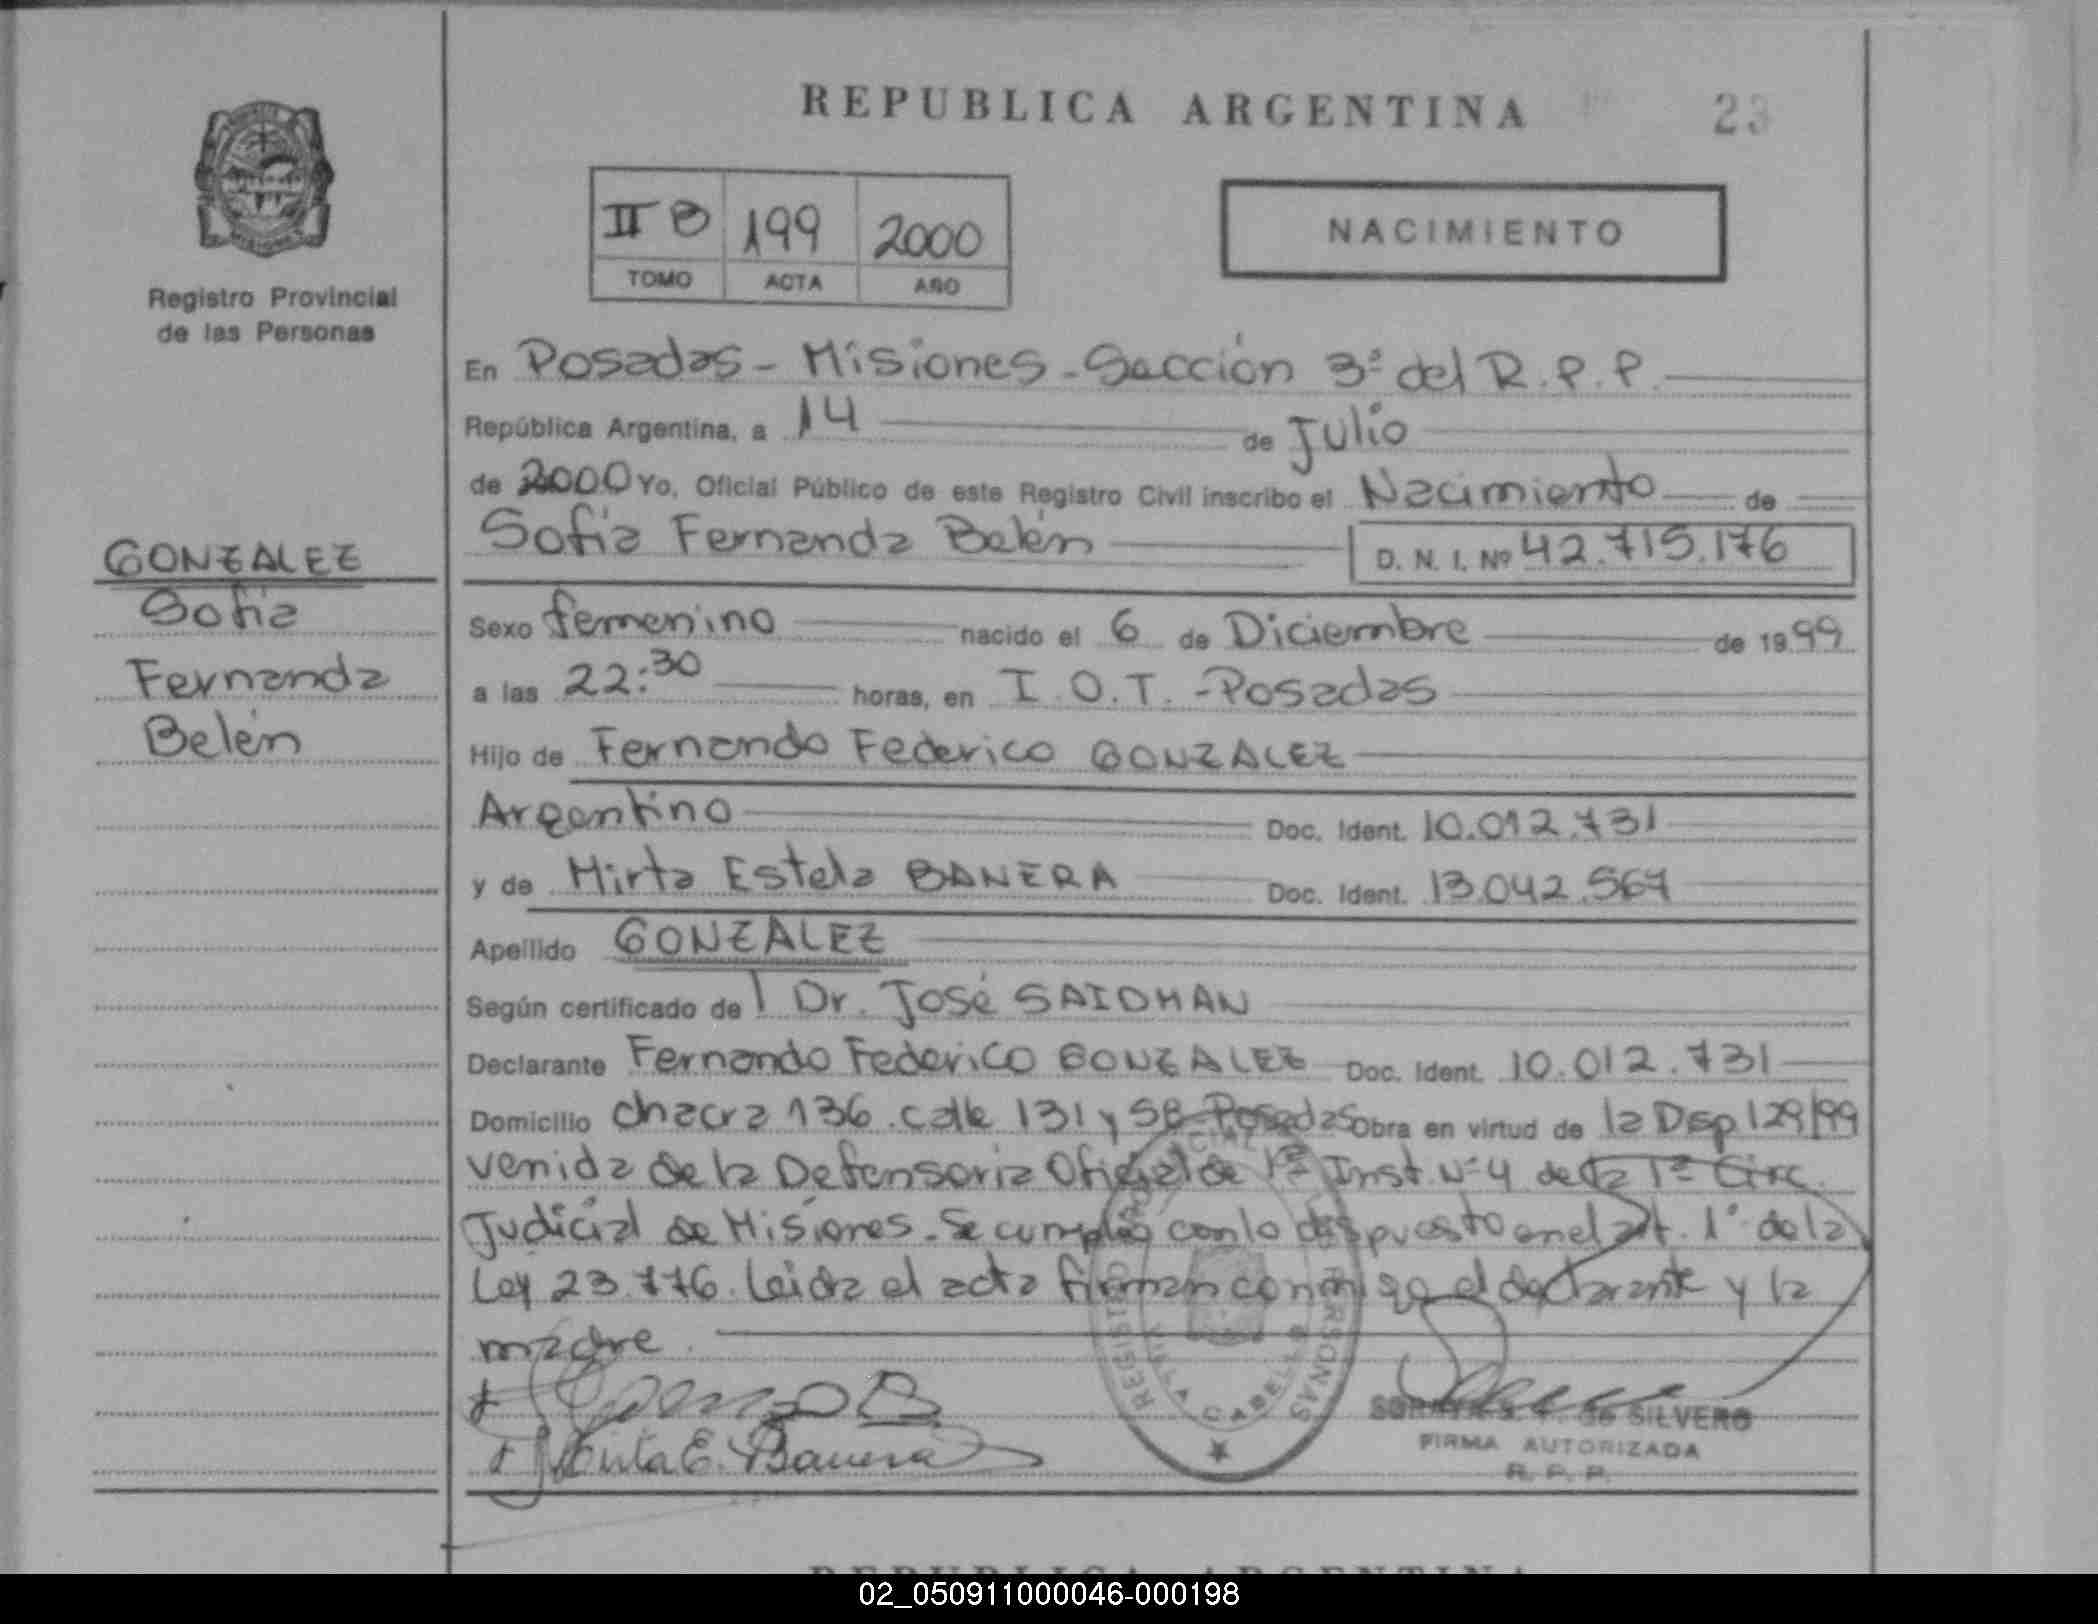 REPUBLICA ARGENTINA
23
II B 199 2000
TOMO ACTA AÑO
NACIMIENTO
Registro Provincial
de las Personas
GONZALEZ
Sofia
Fernanda
Belén
En Posadas - Misiones - Sección 3ª del R.P.P.
República Argentina, a 14 de Julio
de 2000 Yo, Oficial Público de este Registro Civil inscribo el Nacimiento de
Sofia Fernanda Belén D. N. I. Nº 42.715.176
Sexo femenino nacido el 6 de Diciembre de 1999
a las 22:30 horas, en I.O.T. - Posadas
Hijo de Fernando Federico GONZALEZ
Argentino Doc. Ident. 10.012.731
y de Mirta Estela BANERA Doc. Ident. 13.042.567
Apellido GONZALEZ
Según certificado de l Dr. José SAIDMAN
Declarante Fernando Federico GONZALEZ Doc. Ident. 10.012.731
Domicilio chacra 136 calle 131 y 58 Posadas Obra en virtud de la Dsp 129/99
venida de la Defensoria Oficial de 1ª Inst. Nº 4 de la 1ª Circ.
Judicial de Misiones. Se cumplió con lo dispuesto en el art. 1º de la
Ley 23.776. Leida el acta firman conmigo el declarante y la
madre.
Mirta E. Banera
REGISTRO PERSONAS
VILLA CABELLO
de SILVERO
FIRMA AUTORIZADA
R. P. P.
REPUBLICA ARGENTINA
02_050911000046-000198